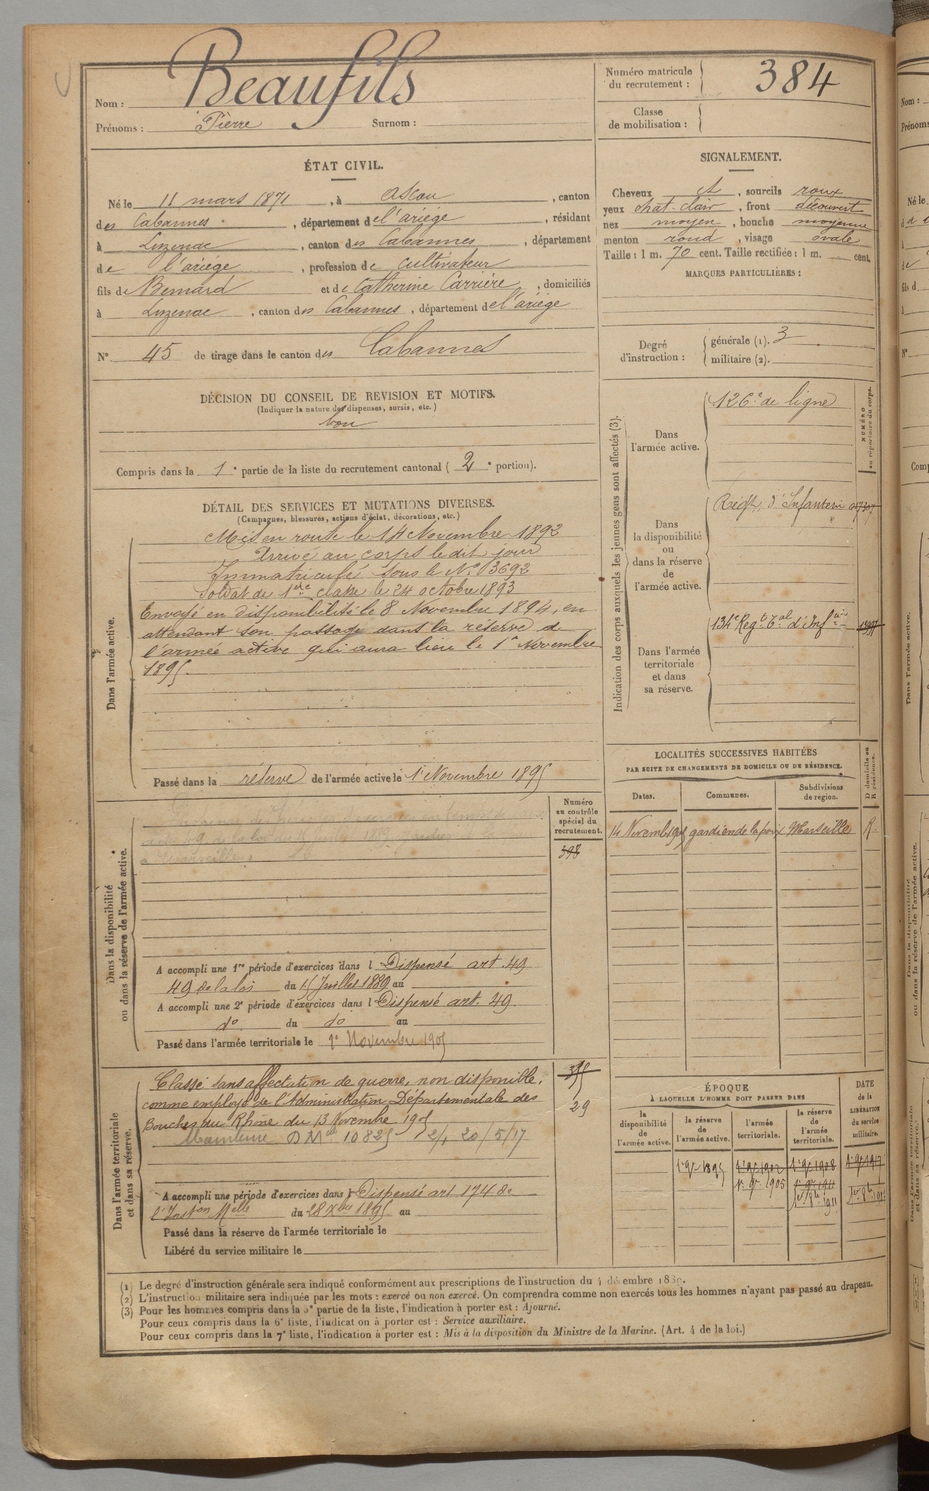 Nom : Beaufils
Prénoms : Pierre Surnom :
Numéro matricule du recrutement : 384
Classe de mobilisation :
ÉTAT CIVIL.
Né le 11 mars 1871, à Ascou, canton
des Cabannes, département de l'ariège, résidant
à Luzenac, canton des Cabannes, département
de l'ariège, profession de cultivateur
fils de Bernard et de Catherine Carrière, domiciliés
à Luzenac, canton des Cabannes, département de l'ariège
N° 45 de tirage dans le canton des Cabannes
SIGNALEMENT.
Cheveux et, sourcils roux
yeux chat. clair, front découvert
nez moyen, bouche moyenne
menton rond, visage ovale
Taille : 1 m. 70 cent. Taille rectifiée : 1 m. cent.
MARQUES PARTICULIÈRES :
Degré d'instruction : générale (1). 3
militaire (2).
DÉCISION DU CONSEIL DE REVISION ET MOTIFS.
(Indiquer la nature des dispenses, sursis, etc.)
bon
Compris dans la 1e partie de la liste du recrutement cantonal ( 2e portion).
DÉTAIL DES SERVICES ET MUTATIONS DIVERSES.
(Campagnes, blessures, actions d'éclat, décorations, etc.)
Dans l'armée active.
Mis en route le 14 Novembre 1892
Arrivé au corps le dit jour
Immatriculé sous le N° 3692
Soldat de 1ère classe le 24 octobre 1893
Envoyé en disponibilité le 8 Novembre 1894, en
attendant son passage dans la réserve de
l'armée active qui aura lieu le 1er Novembre
1895.
Passé dans la réserve de l'armée active le 1er Novembre 1895
Indication des corps auxquels les jeunes gens sont affectés (3).
NUMÉRO au répertoire du corps.
Dans l'armée active.
126e de ligne
Dans la disponibilité ou dans la réserve de l'armée active.
Régt. d'Infanterie
Dans l'armée territoriale et dans sa réserve.
134e Régt tal d'Infie
LOCALITÉS SUCCESSIVES HABITÉES
PAR SUITE DE CHANGEMENTS DE DOMICILE OU DE RÉSIDENCE.
Dates. Communes. Subdivisions de région. D domicile ou R résidence.
14 Novembre 1905 gardien de la paix Marseille R.
Dans la disponibilité ou dans la réserve de l'armée active.
Numéro au contrôle spécial du recrutement.
398
A accompli une 1re période d'exercices dans l Dispensé art. 49
49 de la loi du 15 Juillet 1889 au
A accompli une 2e période d'exercices dans l Dispensé art. 49
do du do au
Passé dans l'armée territoriale le 1er Novembre 1905
Dans l'armée territoriale et dans sa réserve.
Classé sans affectation de guerre, non disponible,
comme employé de l'Administration Départementale des
Bouches du Rhône du 13 Novembre 1905
Maintenu D Mlle 10825 2/4 20/5/17
395
29
A accompli une période d'exercices dans l Dispensé art 174 8o
l'Inston Mlle du 28 Xbre 1895 au
Passé dans la réserve de l'armée territoriale le
Libéré du service militaire le
ÉPOQUE
À LAQUELLE L'HOMME DOIT PASSER DANS
la disponibilité de l'armée active. la réserve de l'armée active. l'armée territoriale. la réserve de l'armée territoriale. DATE de la LIBÉRATION du service militaire.
1er 9bre 1895 1er 9bre 1902 1er 9bre 1908 1er 9bre 1917
1er 9bre 1905 1er 9bre 1911
(1) Le degré d'instruction générale sera indiqué conformément aux prescriptions de l'instruction du 4 décembre 1889.
(2) L'instruction militaire sera indiquée par les mots : exercé ou non exercé. On comprendra comme non exercés tous les hommes n'ayant pas passé au drapeau.
(3) Pour les hommes compris dans la 5e partie de la liste, l'indication à porter est : Ajourné.
Pour ceux compris dans la 6e liste, l'indication à porter est : Service auxiliaire.
Pour ceux compris dans la 7e liste, l'indication à porter est : Mis à la disposition du Ministre de la Marine. (Art. 4 de la loi.)